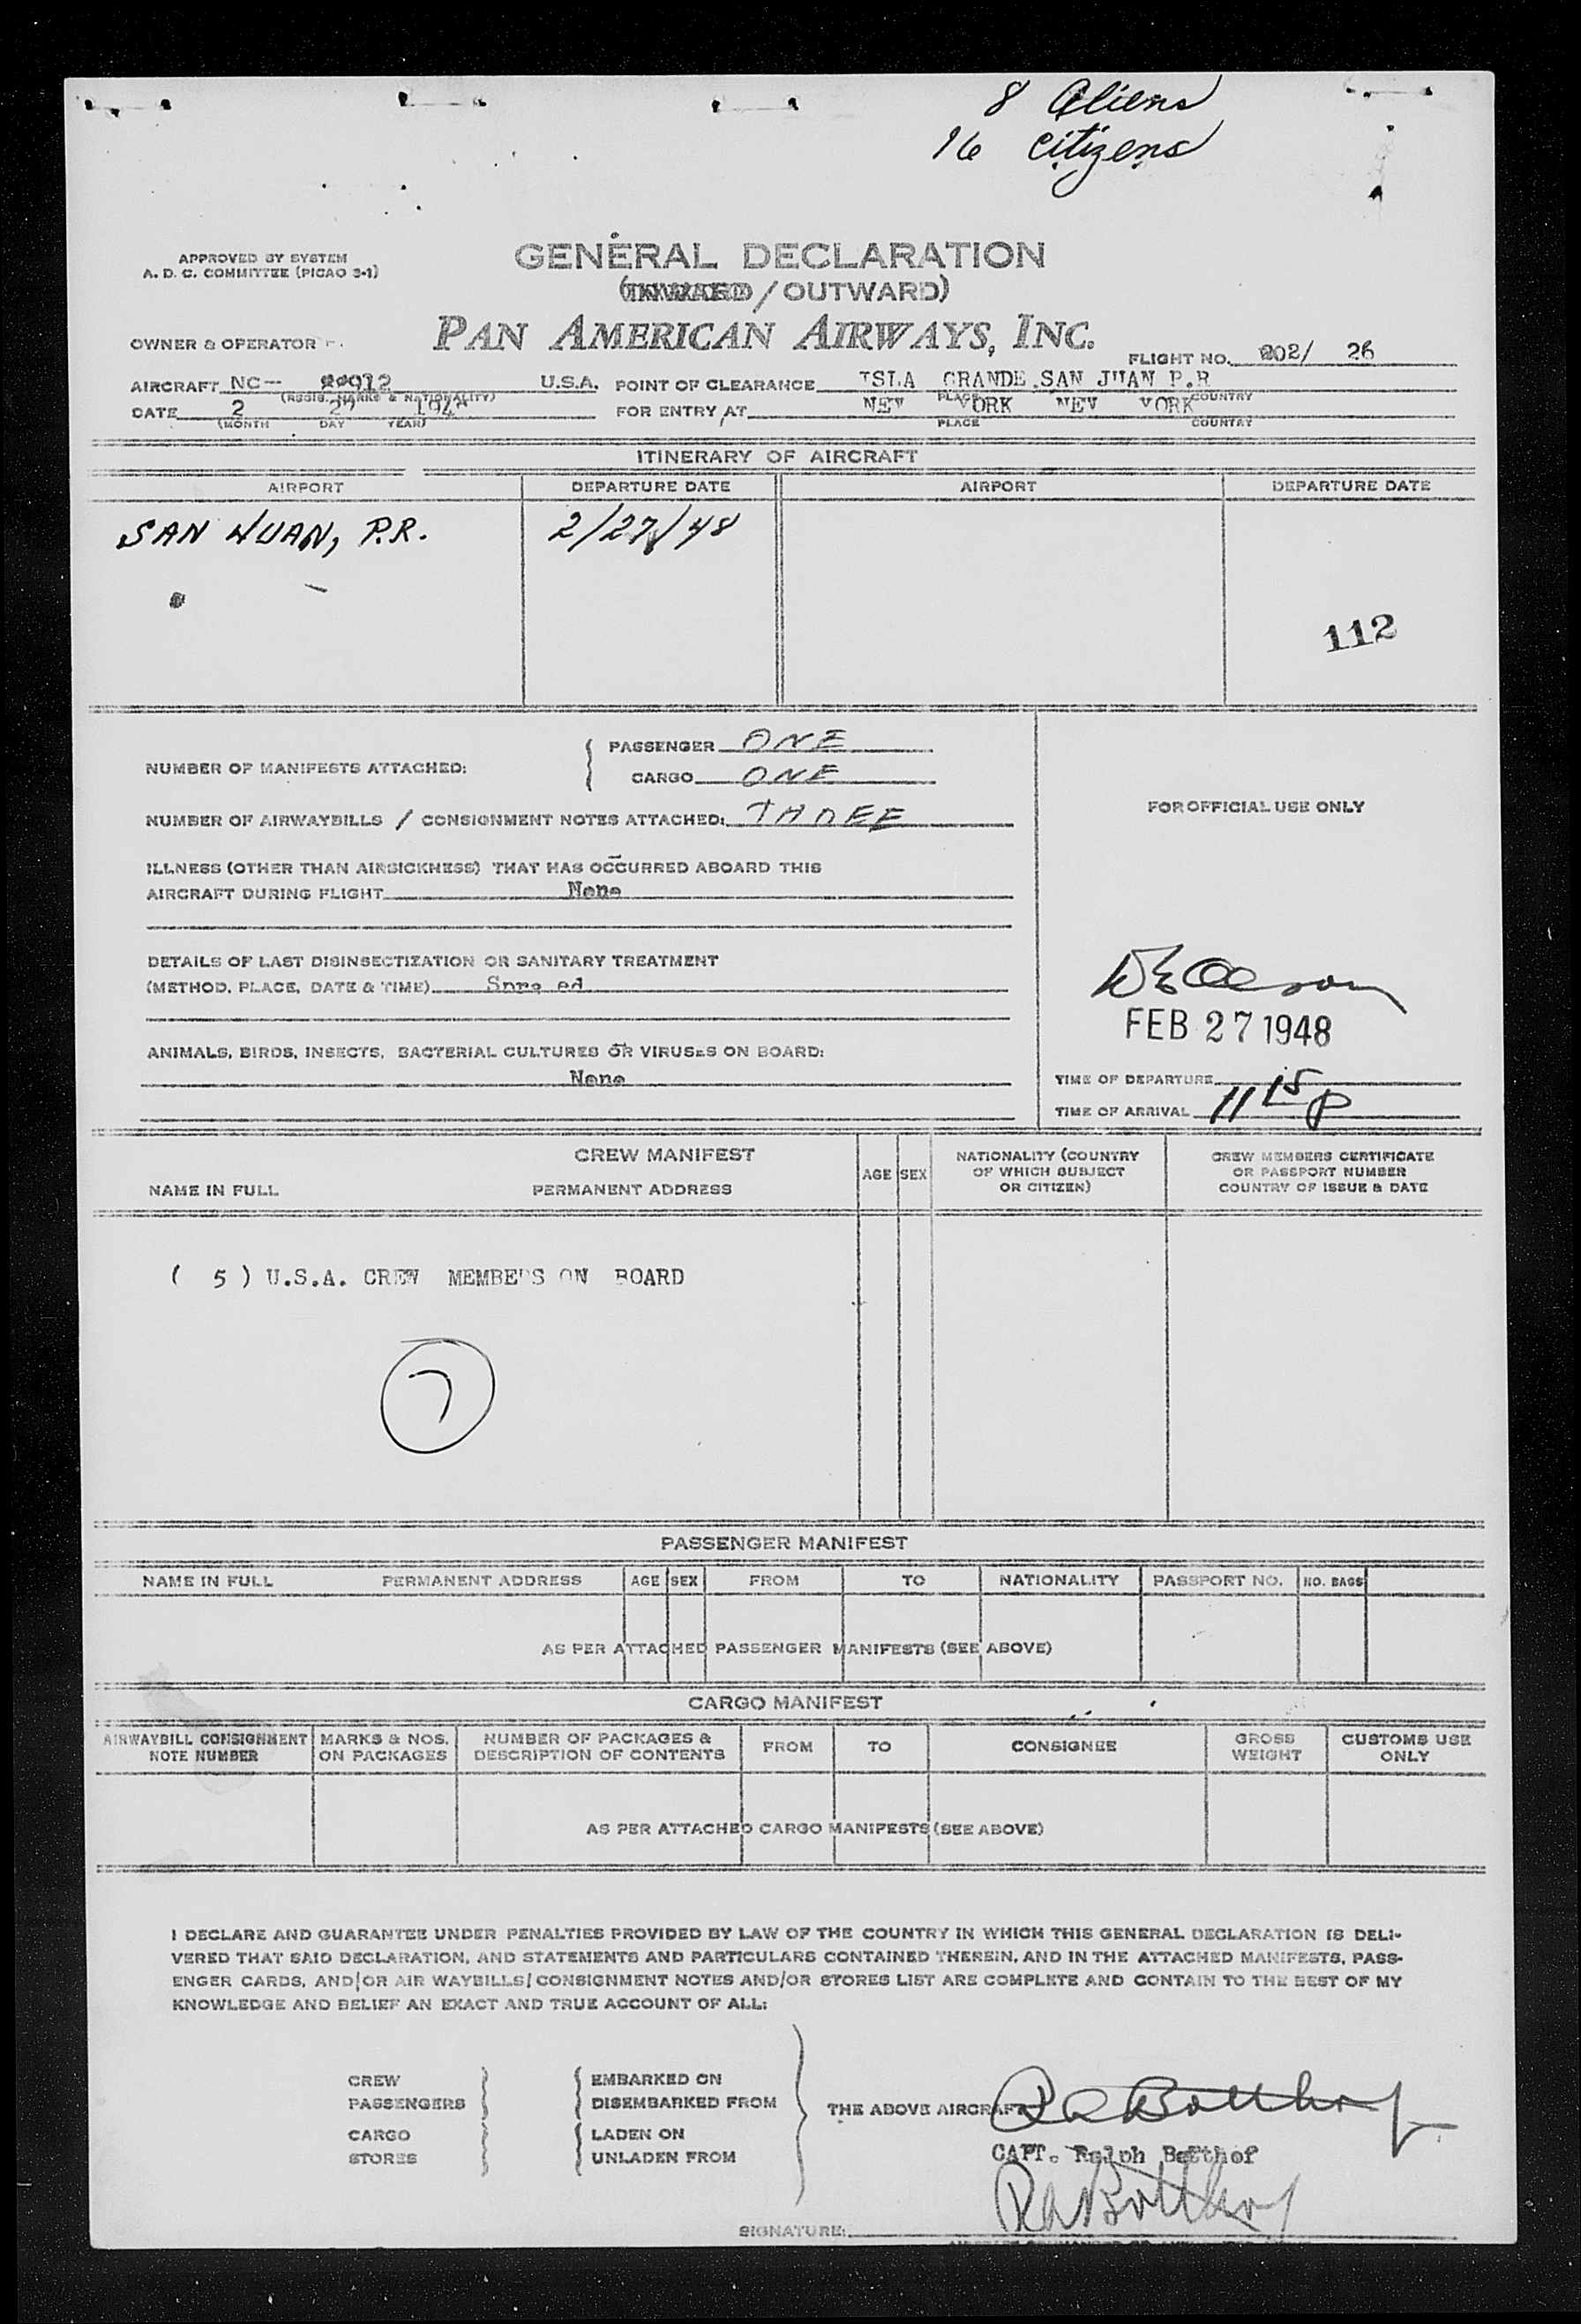 8 Aliens
16 citizens
APPROVED BY SYSTEM
A. D. C. COMMITTEE (PICAO 3-1)
GENERAL DECLARATION
(INWARD / OUTWARD)
PAN AMERICAN AIRWAYS, INC.
OWNER & OPERATOR
FLIGHT NO. 202/ 26
AIRCRAFT NC- U.S.A. POINT OF CLEARANCE ISLA GRANDE, SAN JUAN P.R
(REGIS. MARKS & NATIONALITY) PLACE COUNTRY
DATE 2 27 1948 FOR ENTRY AT NEW YORK NEW YORK
(MONTH DAY YEAR) PLACE COUNTRY
ITINERARY OF AIRCRAFT
AIRPORT DEPARTURE DATE AIRPORT DEPARTURE DATE
SAN JUAN, P.R. 2/27/48
112
NUMBER OF MANIFESTS ATTACHED: PASSENGER ONE
CARGO ONE
NUMBER OF AIRWAYBILLS / CONSIGNMENT NOTES ATTACHED: THREE
FOR OFFICIAL USE ONLY
ILLNESS (OTHER THAN AIRSICKNESS) THAT HAS OCCURRED ABOARD THIS
AIRCRAFT DURING FLIGHT None
DETAILS OF LAST DISINSECTIZATION OR SANITARY TREATMENT
(METHOD, PLACE, DATE & TIME) Spra ed
FEB 27 1948
ANIMALS, BIRDS, INSECTS, BACTERIAL CULTURES OR VIRUSES ON BOARD:
None
TIME OF DEPARTURE
TIME OF ARRIVAL 11 15 p
CREW MANIFEST
NAME IN FULL PERMANENT ADDRESS AGE SEX NATIONALITY (COUNTRY OF WHICH SUBJECT OR CITIZEN) CREW MEMBERS CERTIFICATE OR PASSPORT NUMBER COUNTRY OF ISSUE & DATE
( 5 ) U.S.A. CREW MEMBERS ON BOARD
7
PASSENGER MANIFEST
NAME IN FULL PERMANENT ADDRESS AGE SEX FROM TO NATIONALITY PASSPORT NO. NO. BAGS
AS PER ATTACHED PASSENGER MANIFESTS (SEE ABOVE)
CARGO MANIFEST
AIRWAYBILL CONSIGNMENT NOTE NUMBER MARKS & NOS. ON PACKAGES NUMBER OF PACKAGES & DESCRIPTION OF CONTENTS FROM TO CONSIGNEE GROSS WEIGHT CUSTOMS USE ONLY
AS PER ATTACHED CARGO MANIFESTS (SEE ABOVE)
I DECLARE AND GUARANTEE UNDER PENALTIES PROVIDED BY LAW OF THE COUNTRY IN WHICH THIS GENERAL DECLARATION IS DELI-
VERED THAT SAID DECLARATION, AND STATEMENTS AND PARTICULARS CONTAINED THEREIN, AND IN THE ATTACHED MANIFESTS, PASS-
ENGER CARDS, AND/OR AIR WAYBILLS/CONSIGNMENT NOTES AND/OR STORES LIST ARE COMPLETE AND CONTAIN TO THE BEST OF MY
KNOWLEDGE AND BELIEF AN EXACT AND TRUE ACCOUNT OF ALL:
CREW EMBARKED ON
PASSENGERS DISEMBARKED FROM THE ABOVE AIRCRAFT
CARGO LADEN ON
STORES UNLADEN FROM
CAPT. Ralph Botthof
SIGNATURE: